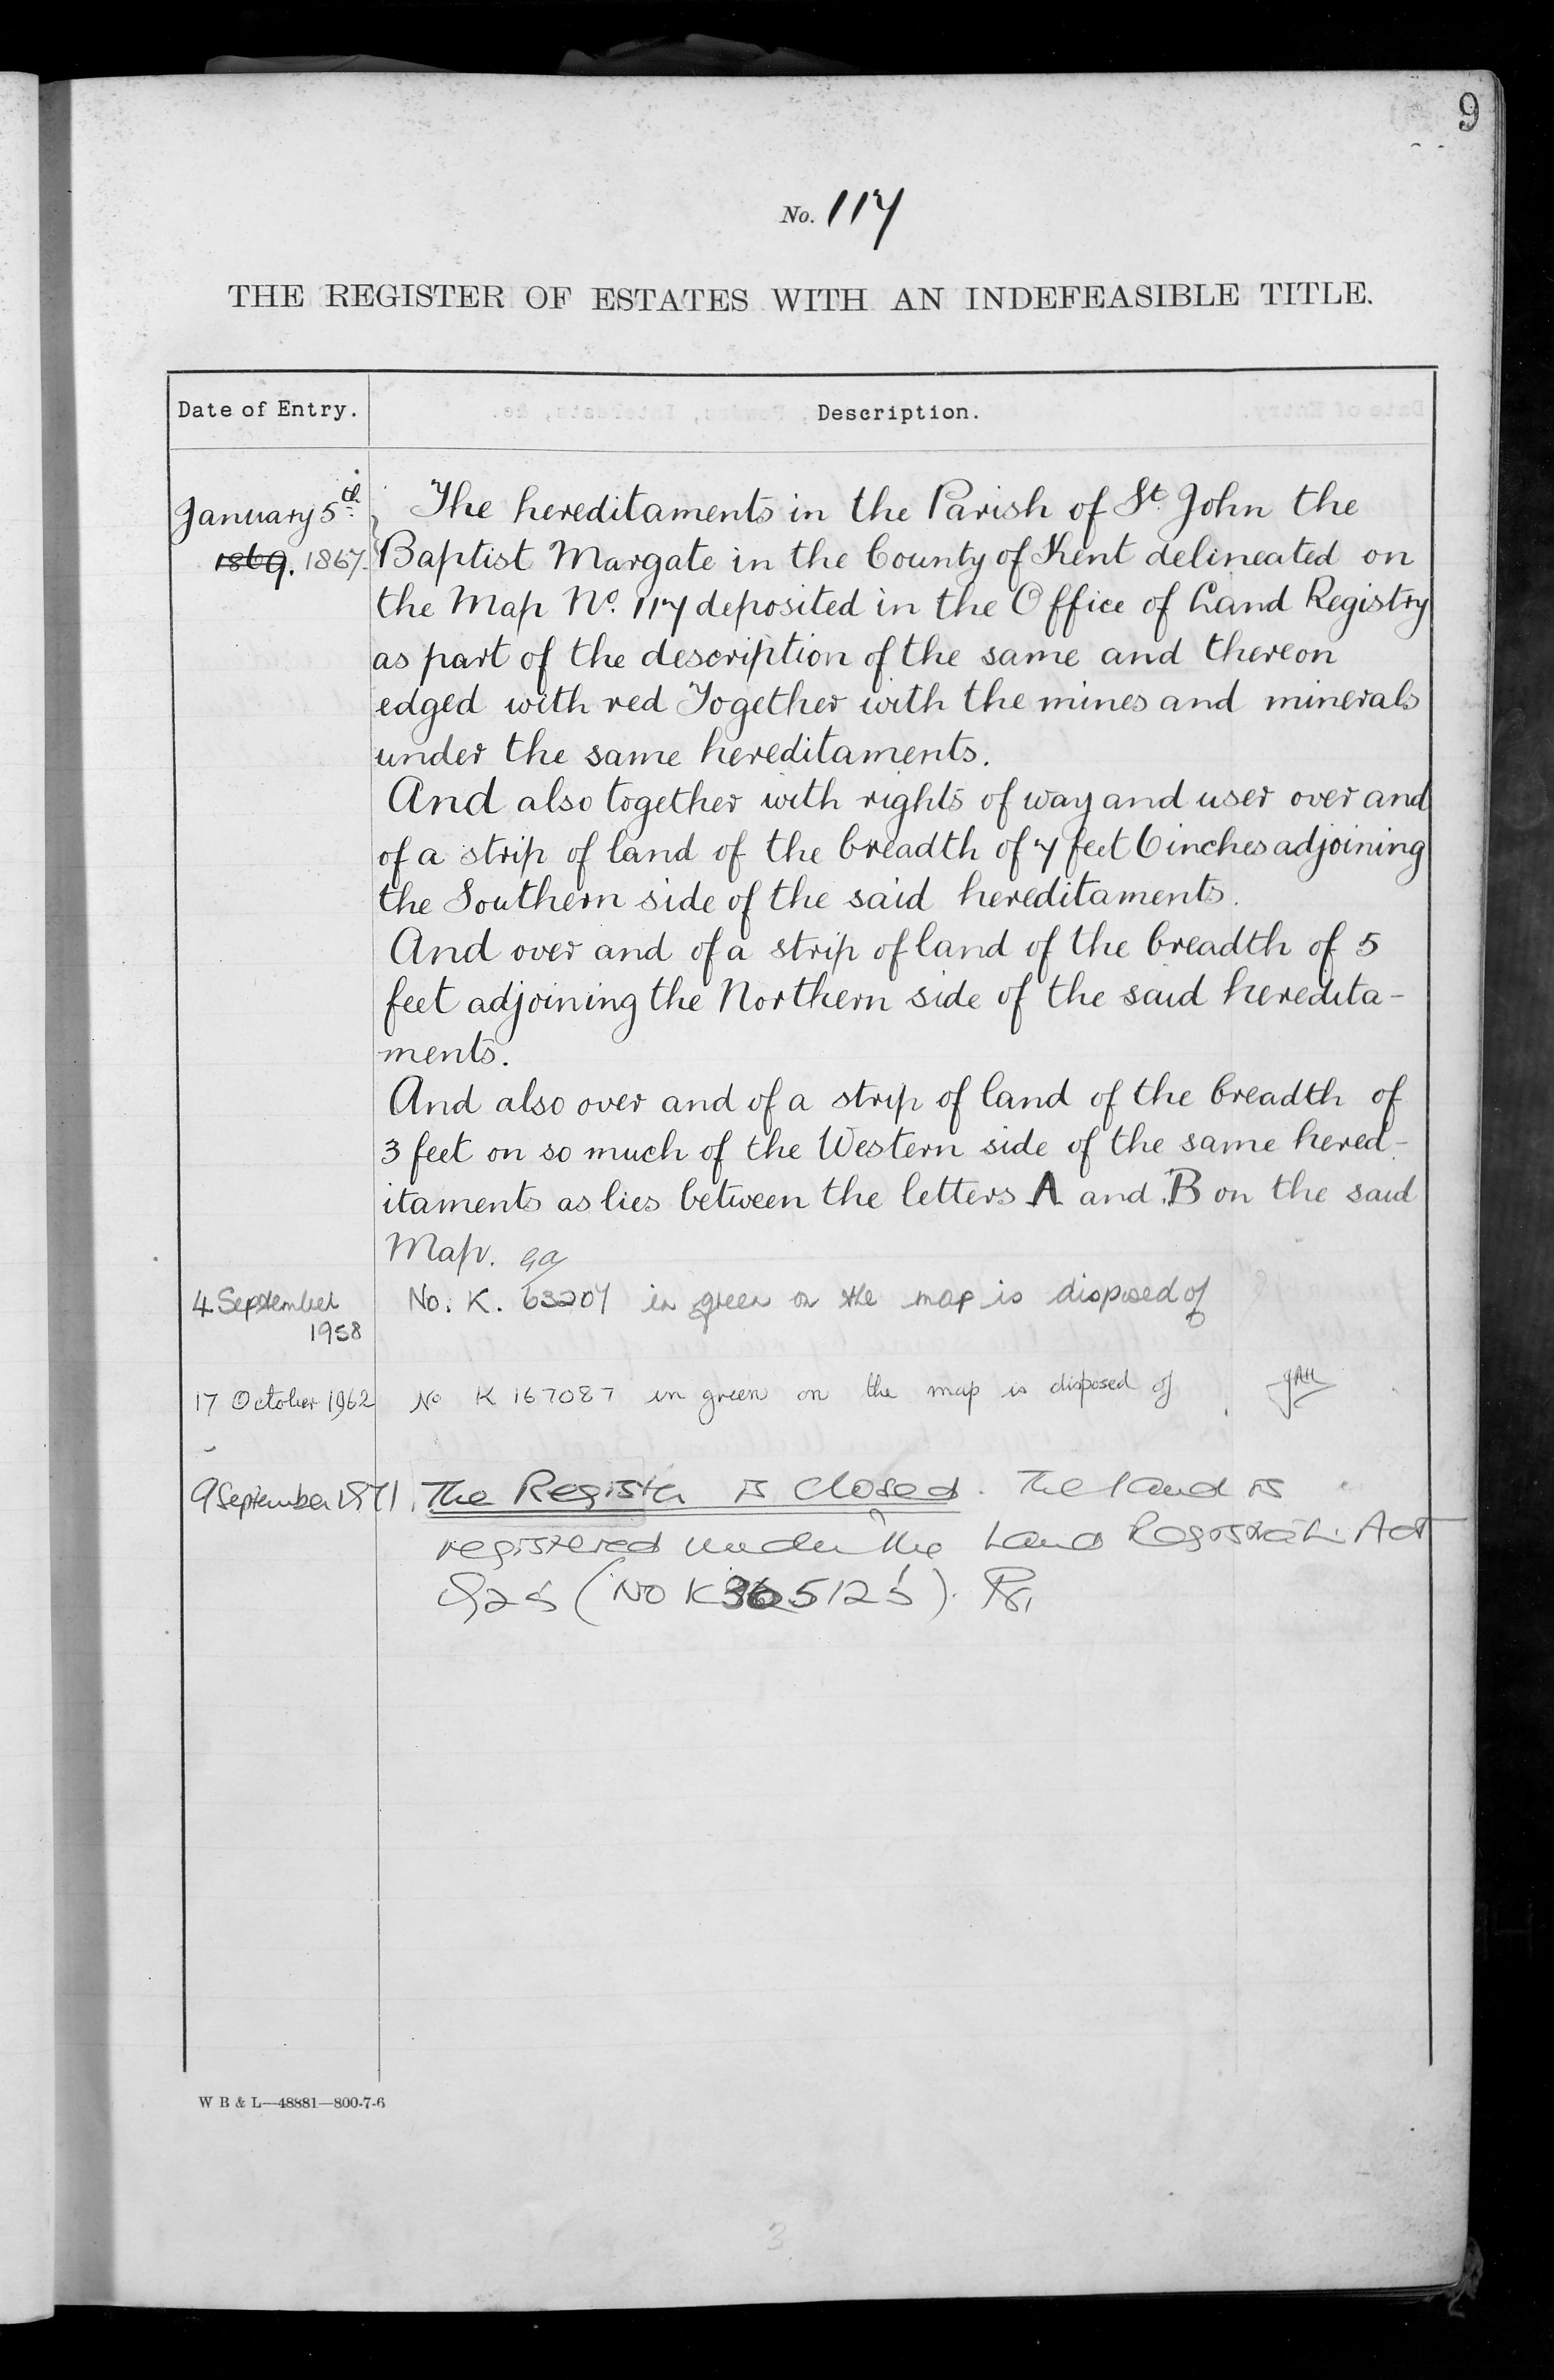 9
No. 117
THE REGISTER OF ESTATES WITH AN INDEFEASIBLE TITLE.
Date of Entry. Description.
January 5th The hereditaments in the Parish of St. John the
1869. 1867. Baptist Margate in the County of Kent delineated on
the Map No. 117 deposited in the Office of Land Registry
as part of the description of the same and thereon
edged with red Together with the mines and minerals
under the same hereditaments.
And also together with rights of way and user over and
of a strip of land of the breadth of 7 feet 6 inches adjoining
the Southern side of the said hereditaments.
And over and of a strip of land of the breadth of 5
feet adjoining the Northern side of the said heredita-
ments.
And also over and of a strip of land of the breadth of
3 feet on so much of the Western side of the same hered-
itaments as lies between the letters A and B on the said
Map.
4 September No. K. 63207 in green on the map is disposed of
1958
17 October 1962 No K 167087 in green on the map is disposed of
9 September 1971. The Register is closed. The land is
registered under the Land Registration Act
1925 (No K365125).
W B & L—48881—800-7-6
3